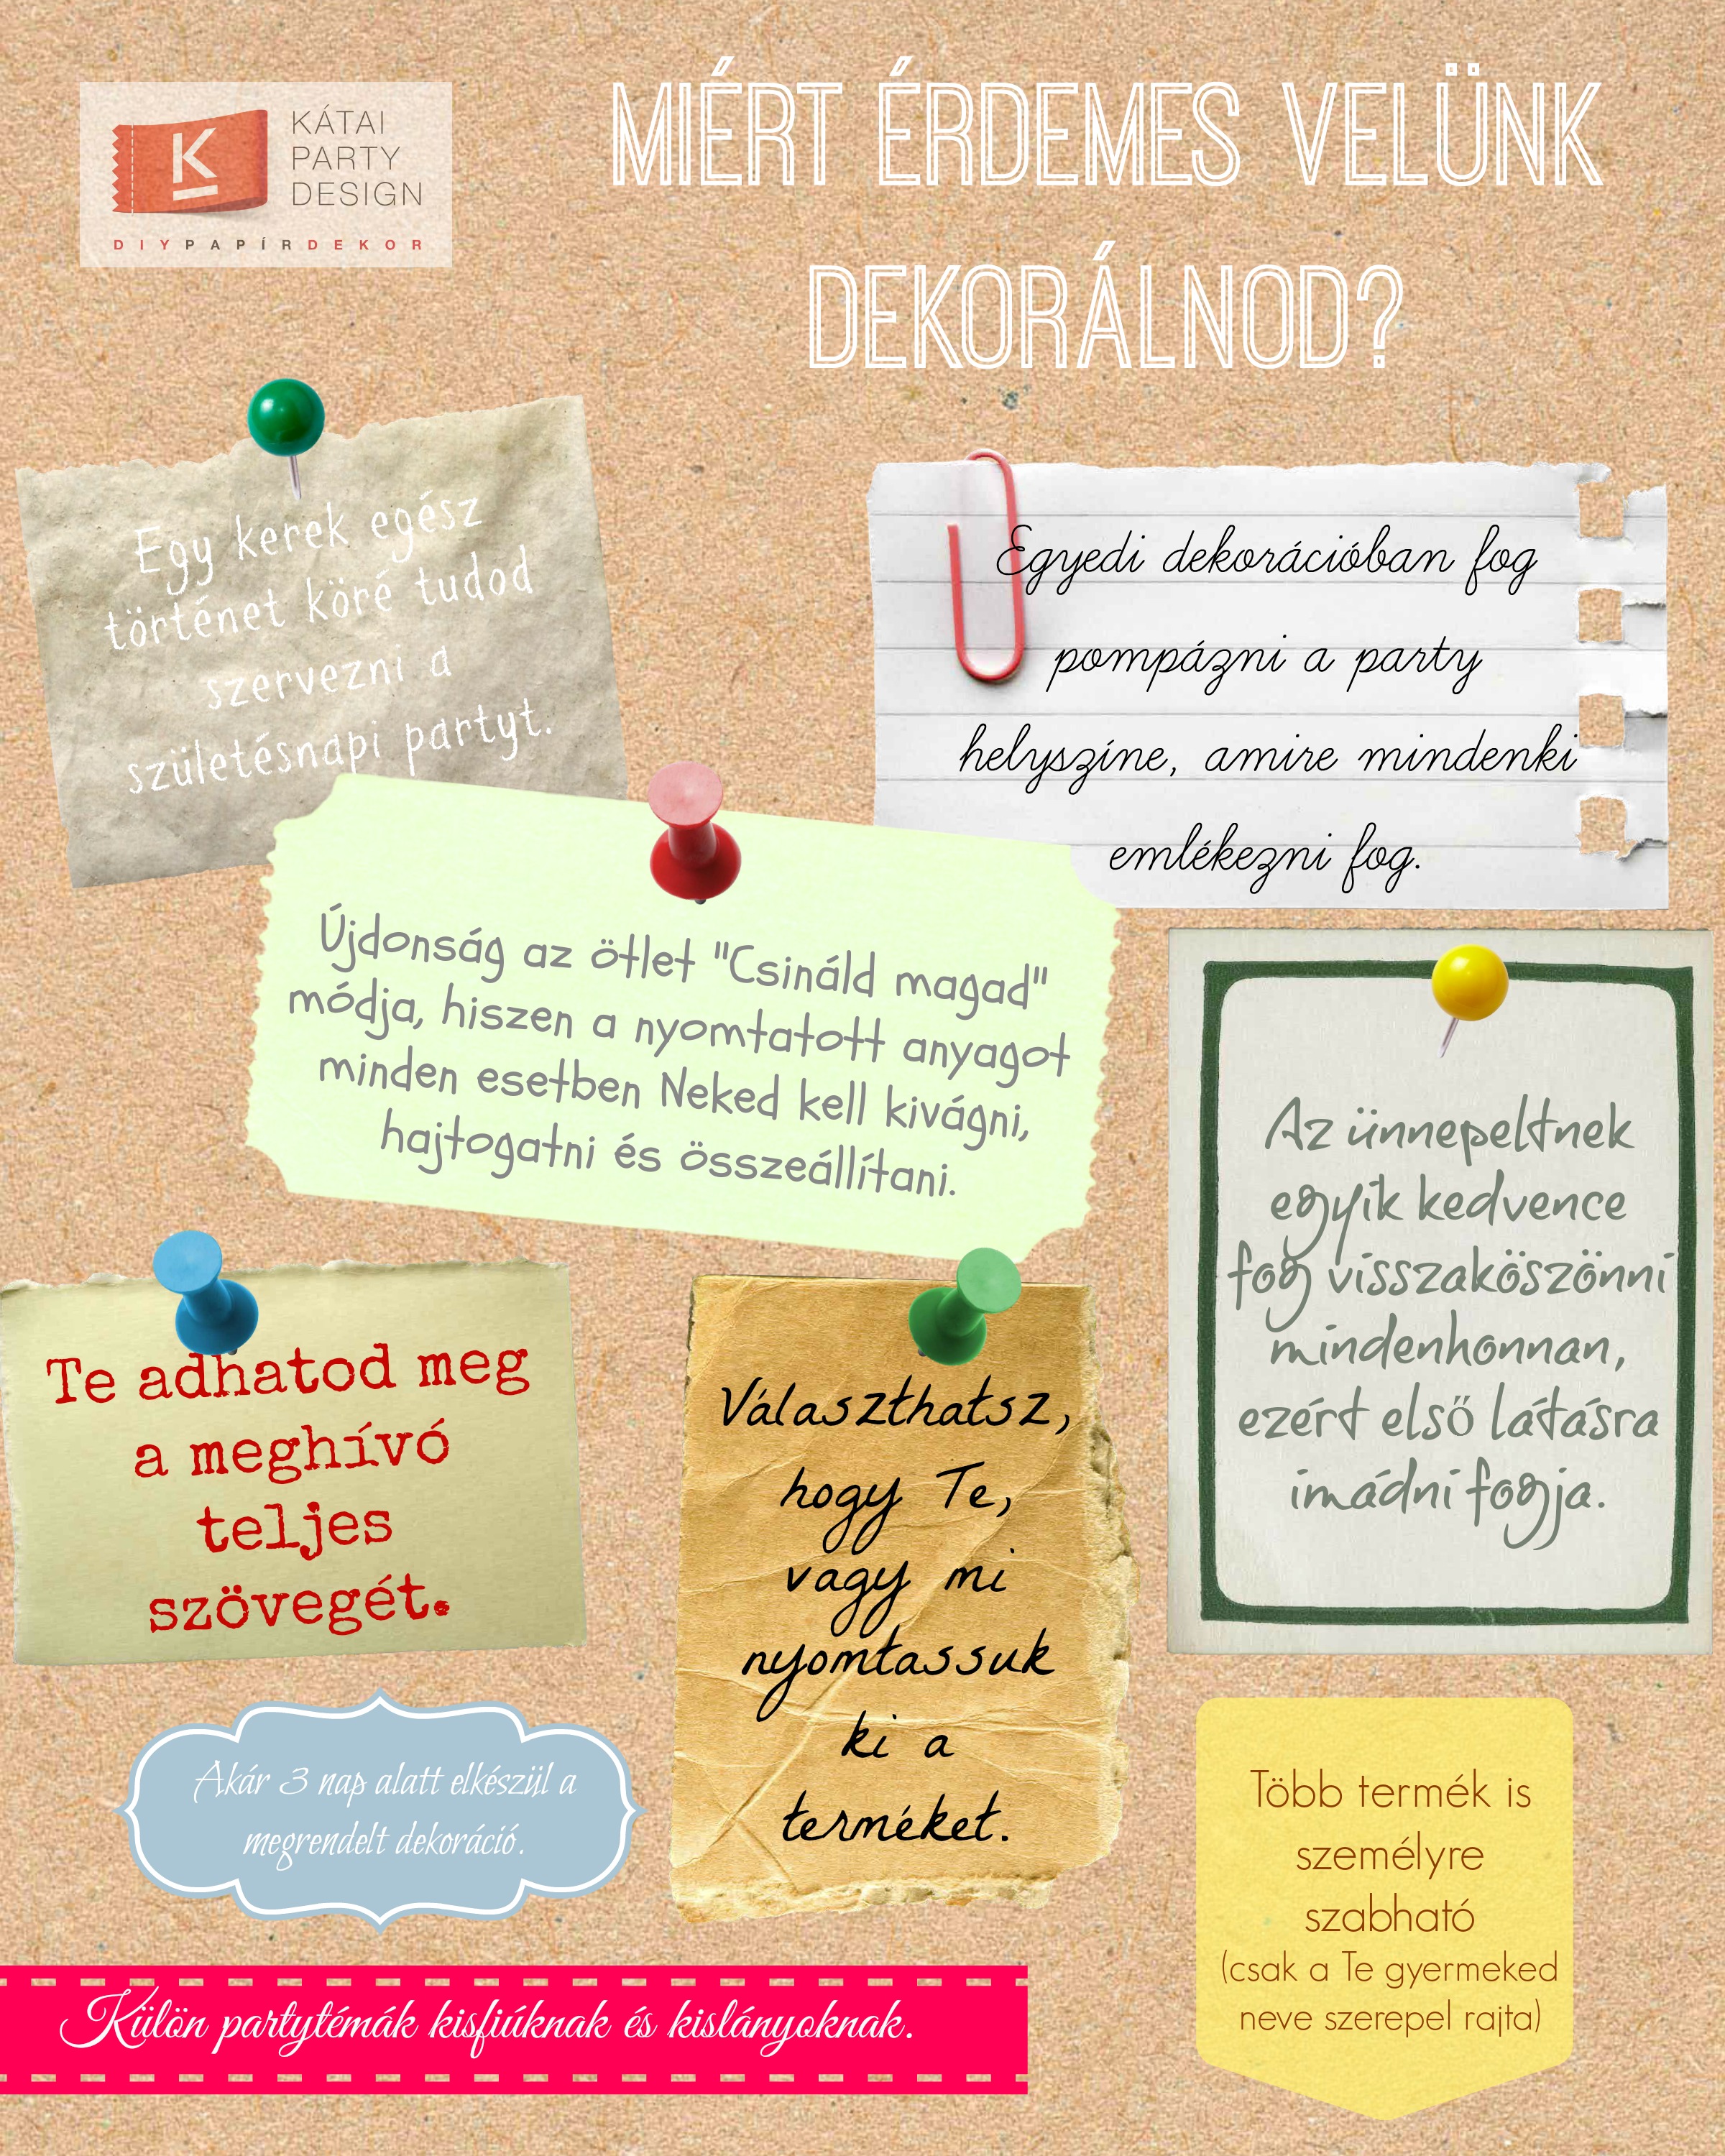 KÁTAI
PARTY
DESIGN
DIYPAPÍRDEKOR
MIÉRT ÉRDEMES VELÜNK
DEKORÁLNOD?
Egy kerek egész
történet köré tudod
szervezni a
születésnapi partyt.
Egyedi dekorációban fog
pompázni a party
helyszíne, amire mindenki
emlékezni fog.
Újdonság az ötlet "Csináld magad"
módja, hiszen a nyomtatott anyagot
minden esetben Neked kell kivágni,
hajtogatni és összeállítani.
Az ünnepeltnek
egyik kedvence
fog visszaköszönni
mindenhonnan,
ezért első látásra
imádni fogja.
Te adhatod meg
a meghívó
teljes
szövegét.
Választhatsz,
hogy Te,
vagy mi
nyomtassuk
ki a
terméket.
Akár 3 nap alatt elkészül a
megrendelt dekoráció.
Több termék is
személyre
szabható
(csak a Te gyermeked
neve szerepel rajta)
Külön partytémák kisfiúknak és kislányoknak.